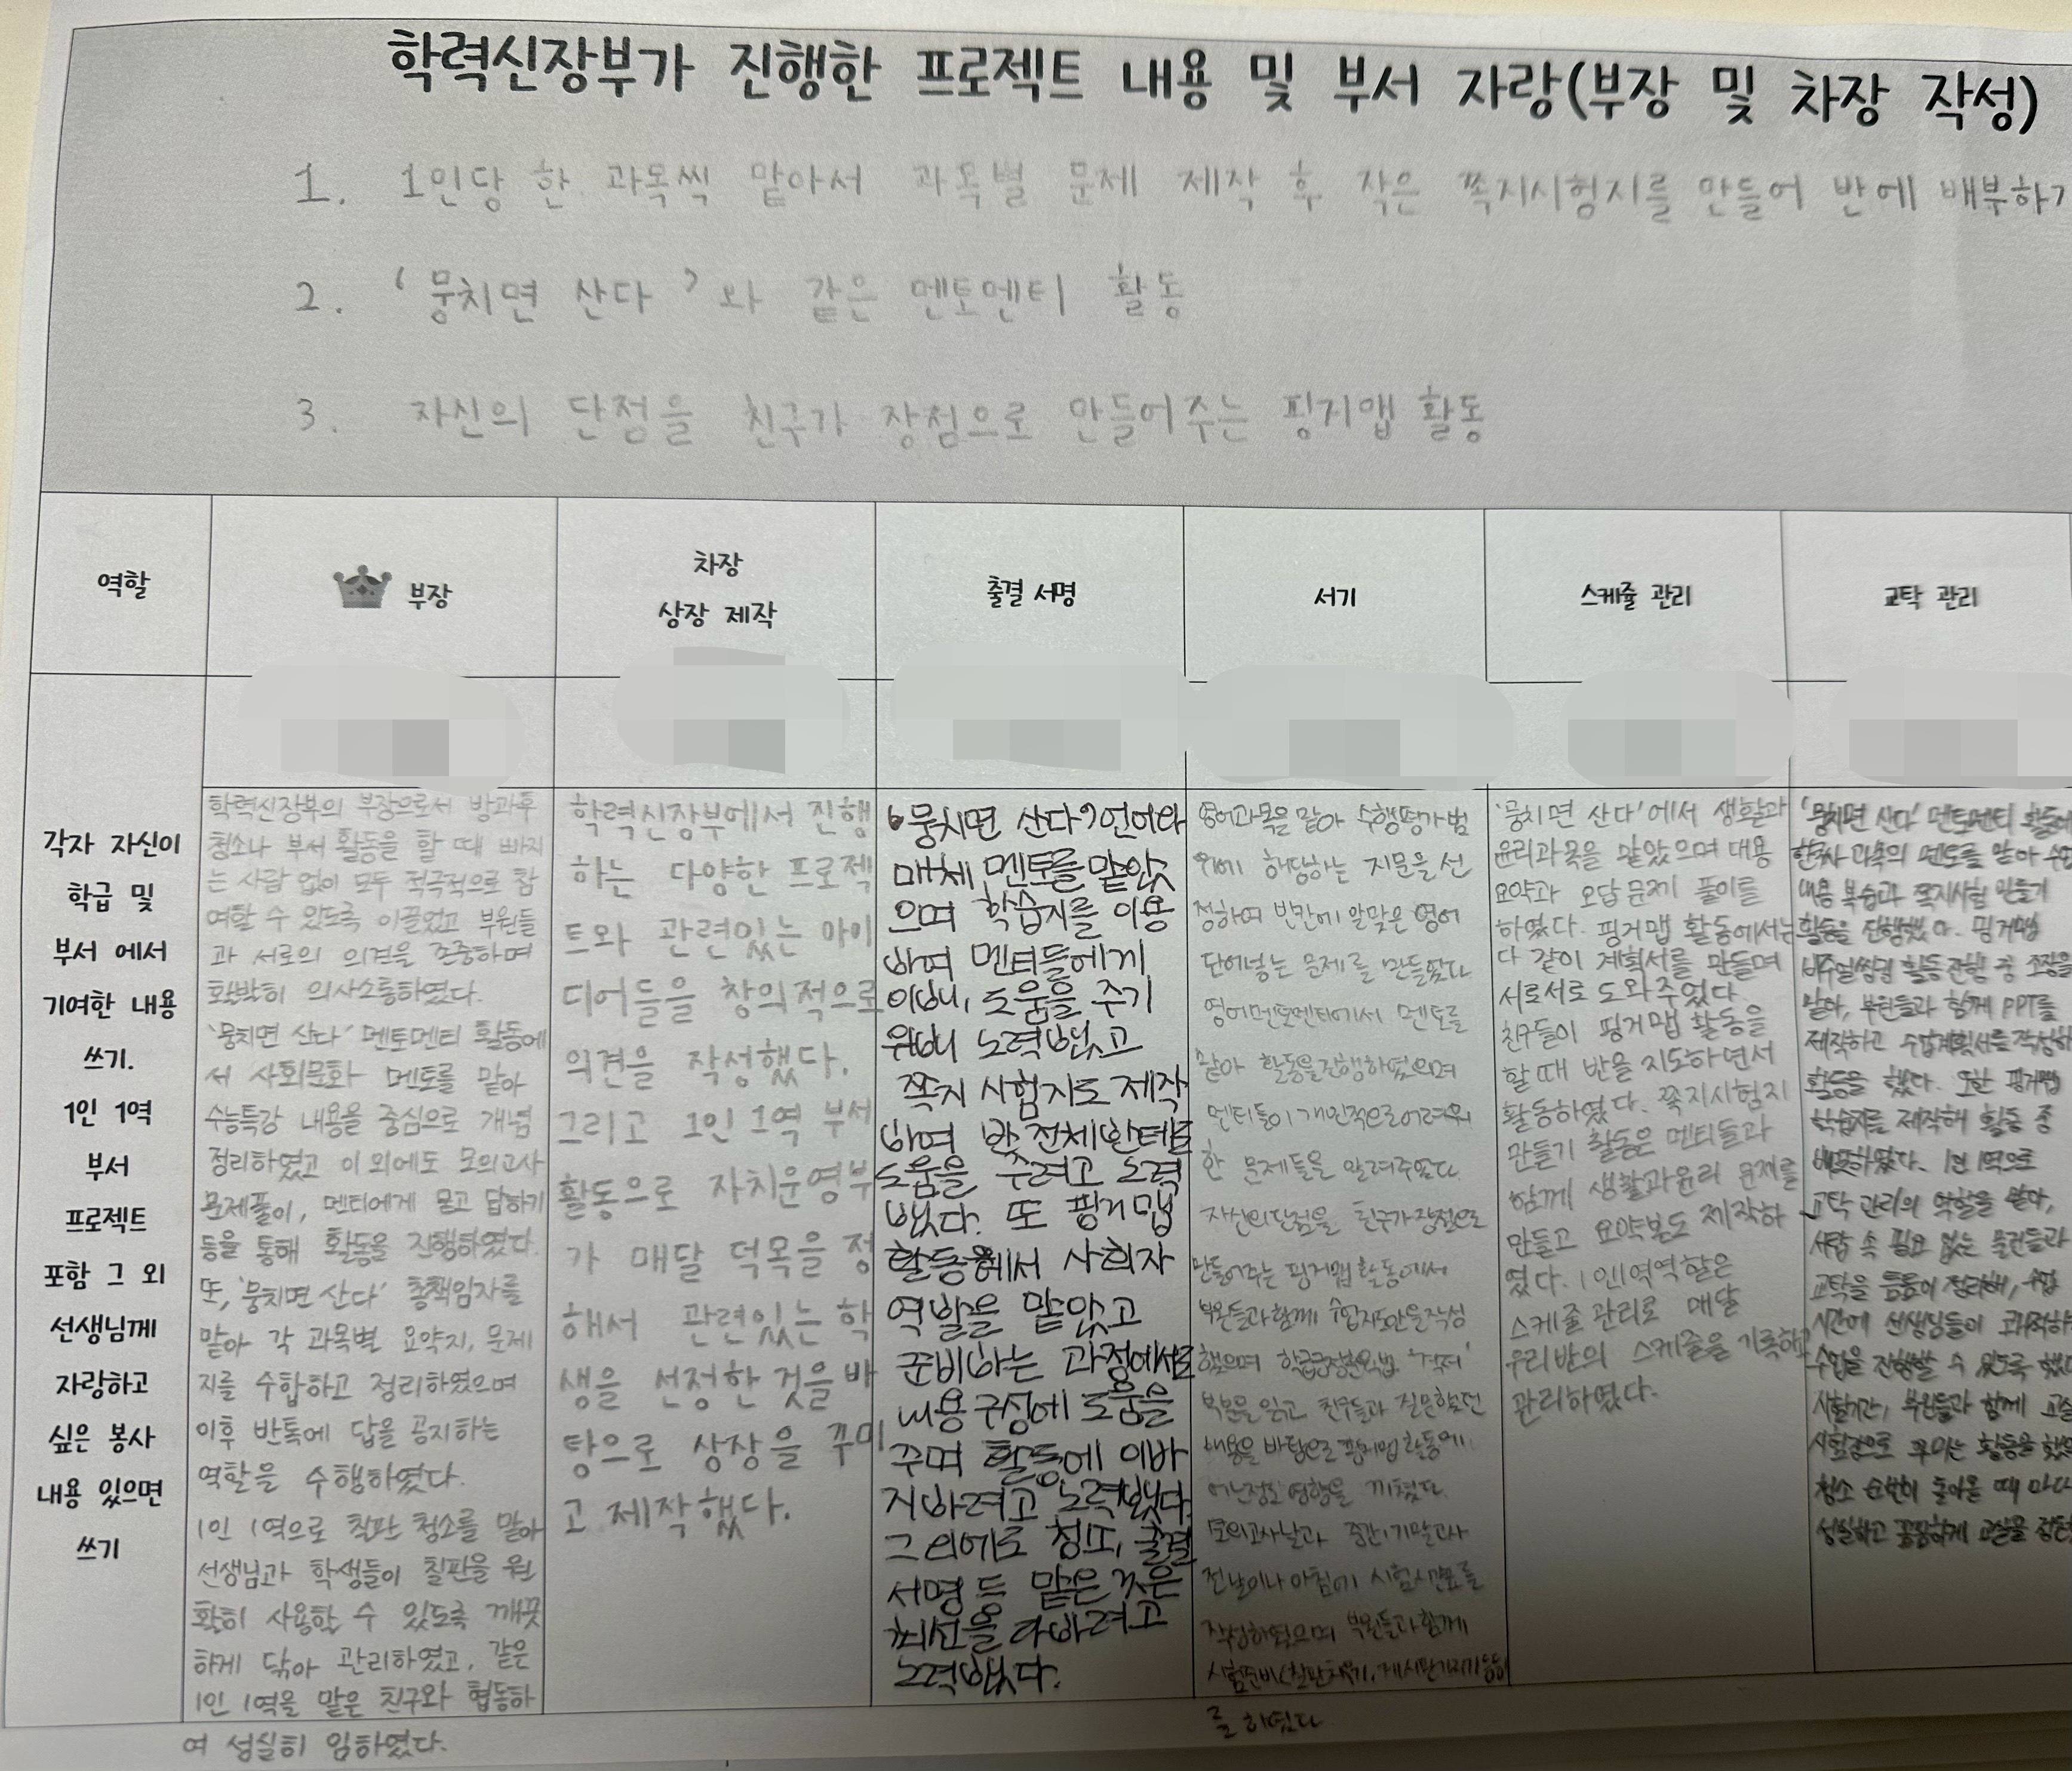 학력신장부가 진행한 프로젝트 내용 및 부서 자랑(부장 및 차장 작성)
1. 1인당 한 과목씩 맡아서 과목별 문제 제작 후 작은 쪽지시험지를 만들어 반에 배부하기
2. '뭉치면 산다'와 같은 멘토멘티 활동
3. 자신의 단점을 친구가 장점으로 만들어주는 핑거맵 활동
역할
부장
차장
상장 제작
출결 서명
서기
스케줄 관리
교탁 관리
각자 자신이
학급 및
부서 에서
기여한 내용
쓰기.
1인 1역
부서
프로젝트
포함 그 외
선생님께
자랑하고
싶은 봉사
내용 있으면
쓰기
학력신장부의 부장으로서 방과후
청소나 부서 활동을 할 때 빠지
는 사람 없이 모두 적극적으로 참
여할 수 있도록 이끌었고 부원들
과 서로의 의견을 존중하며
활발히 의사소통하였다.
'뭉치면 산다' 멘토멘티 활동에
서 사회문화 멘토를 맡아
수능특강 내용을 중심으로 개념
정리하였고 이 외에도 모의고사
문제풀이, 멘티에게 묻고 답하기
등을 통해 활동을 진행하였다.
또, '뭉치면 산다' 총책임자를
맡아 각 과목별 요약지, 문제
지를 수합하고 정리하였으며
이후 반톡에 답을 공지하는
역할을 수행하였다.
1인 1역으로 칠판 청소를 맡아
선생님과 학생들이 칠판을 원
활히 사용할 수 있도록 깨끗
하게 닦아 관리하였고, 같은
1인 1역을 맡은 친구와 협동하
여 성실히 임하였다.
학력신장부에서 진행
하는 다양한 프로젝
트와 관련있는 아이
디어들을 창의적으로
의견을 작성했다.
그리고 1인 1역 부서
활동으로 자치운영부
가 매달 덕목을 정
해서 관련있는 학
생을 선정한 것을 바
탕으로 상장을 꾸미
고 제작했다.
'뭉치면 산다' 언어와
매체 멘토를 맡았
으며 학습지를 이용
하여 멘티들에게
이해, 도움을 주기
위해 노력했고
쪽지 시험지도 제작
하여 반 전체한테도
도움을 주려고 노력
했다. 또 핑거맵
활동에서 사회자
역할을 맡았고
준비하는 과정에서도
내용 구성에 도움을
주며 활동에 이바
지하려고 노력했다.
그 외에도 청소, 출결
서명 등 맡은 것은
최선을 다하려고
노력했다.
영어과목을 맡아 수행평가 범
위에 해당하는 지문을 선
정하여 빈칸에 알맞은 영어
단어넣는 문제를 만들었다
영어멘토멘티에서 멘토를
맡아 활동을 진행하였으며
멘티들이 개인적으로 어려워
한 문제들을 알려주었다.
자신의 단점을 친구가 장점으로
만들어주는 핑거맵 활동에서
부원들과 함께 수업지도안을 작성
했으며 학급긍정훈육법
부분을 읽고 친구들과 질문했던
내용을 바탕으로 핑거맵 활동에
어느정도 영향을 끼쳤다.
모의고사날과 중간, 기말고사
전날이나 아침에 시험시간표를
작성하였으며 부원들과 함께
시험준비(칠판 지우기, 게시판가리기 등등)
를 하였다
'뭉치면 산다'에서 생활과
윤리과목을 맡았으며 내용
요약과 오답 문제 풀이를
하였다. 핑거맵 활동에서는
다 같이 계획서를 만들며
서로서로 도와주었다.
친구들이 핑거맵 활동을
할 때 반을 지도하면서
활동하였다. 쪽지시험지
만들기 활동은 멘티들과
함께 생활과윤리 문제를
만들고 요약본도 제작하
였다. 1인1역역할은
스케줄 관리로 매달
우리반의 스케줄을 기록하고
관리하였다.
'뭉치면 산다' 멘토멘티 활동에
한국사 과목의 멘토를 맡아 수업
내용 복습과 쪽지시험 만들기
활동을 진행했다. 핑거맵
활동 진행 중 조장을
맡아, 부원들과 함께 PPT를
제작하고 수업계획서를 작성하
활동을 했다. 또한 핑거맵
학습지를 제작해 활동 중
배포하였다. 1인 1역으로
교탁 관리의 역할을 맡아,
서랍 속 필요 없는 물건들과
교탁을 틈틈이 정리해, 수업
시간에 선생님들이 쾌적하
수업을 진행할 수 있도록 했다
시험기간, 부원들과 함께 교실
시험장으로 꾸미는 활동을 했으
청소 순번이 돌아올 때 마다
성실하고 꼼꼼하게 교실을 청소